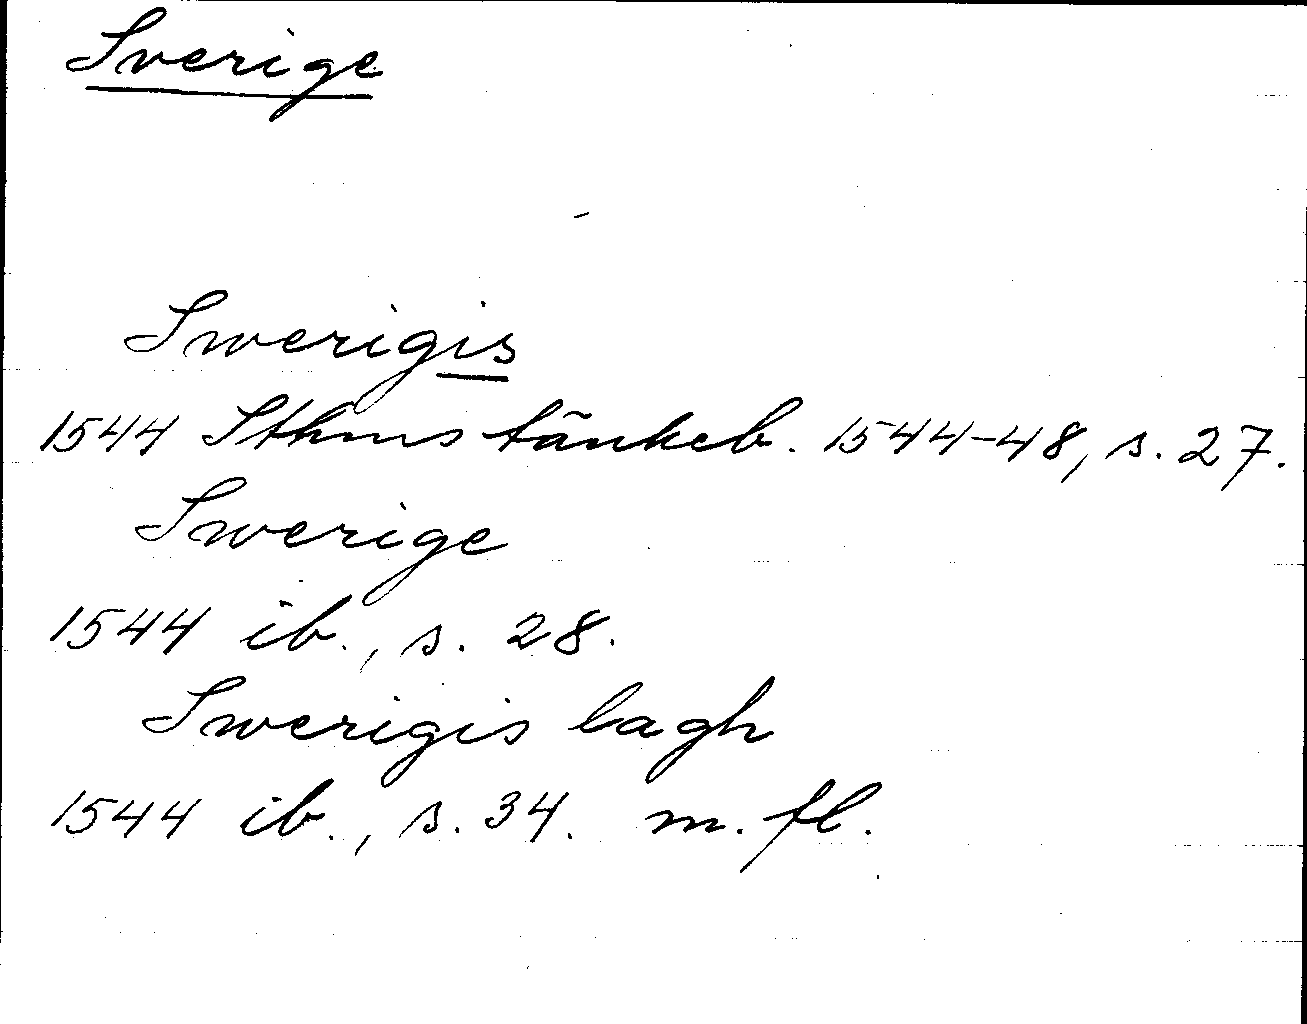 Sverige
Swerigis
1544 Sthms tänkeb. 1544-48, s. 27.
Swerige
1544 ib., s. 28.
Swerigis lagh
1544 ib., s. 34. m. fl.